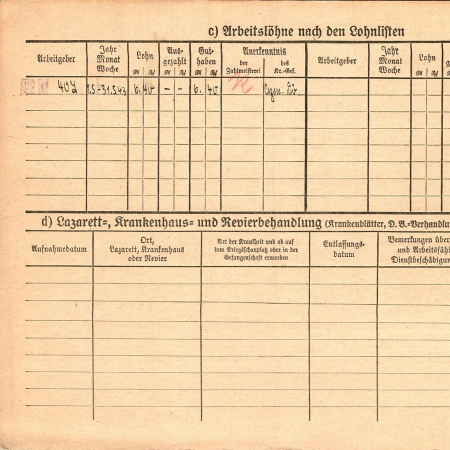 c) Arbeitslöhne nach den Lohnlisten
Arbeitgeber Jahr Monat Woche Lohn RM Rpf Ausgezahlt RM Rpf Guthaben RM Rpf Anerkenntnis der Zahlmeisterei des Kr.-Gef. Arbeitgeber Jahr Monat Woche Lohn RM Rpf
407 1.5.-31.5.43 6. 40 - - 6. 40
d) Lazarett=, Krankenhaus= und Revierbehandlung (Krankenblätter, D. B.=Verhandlu
Aufnahmedatum
Ort,
Lazarett, Krankenhaus
oder Revier
Art der Krankheit und ob auf
dem Kriegsschauplatz oder in der
Gefangenschaft erworben
Entlassungs-
datum
Bemerkungen über
und Arbeitsfäh
Dienstbeschädigun